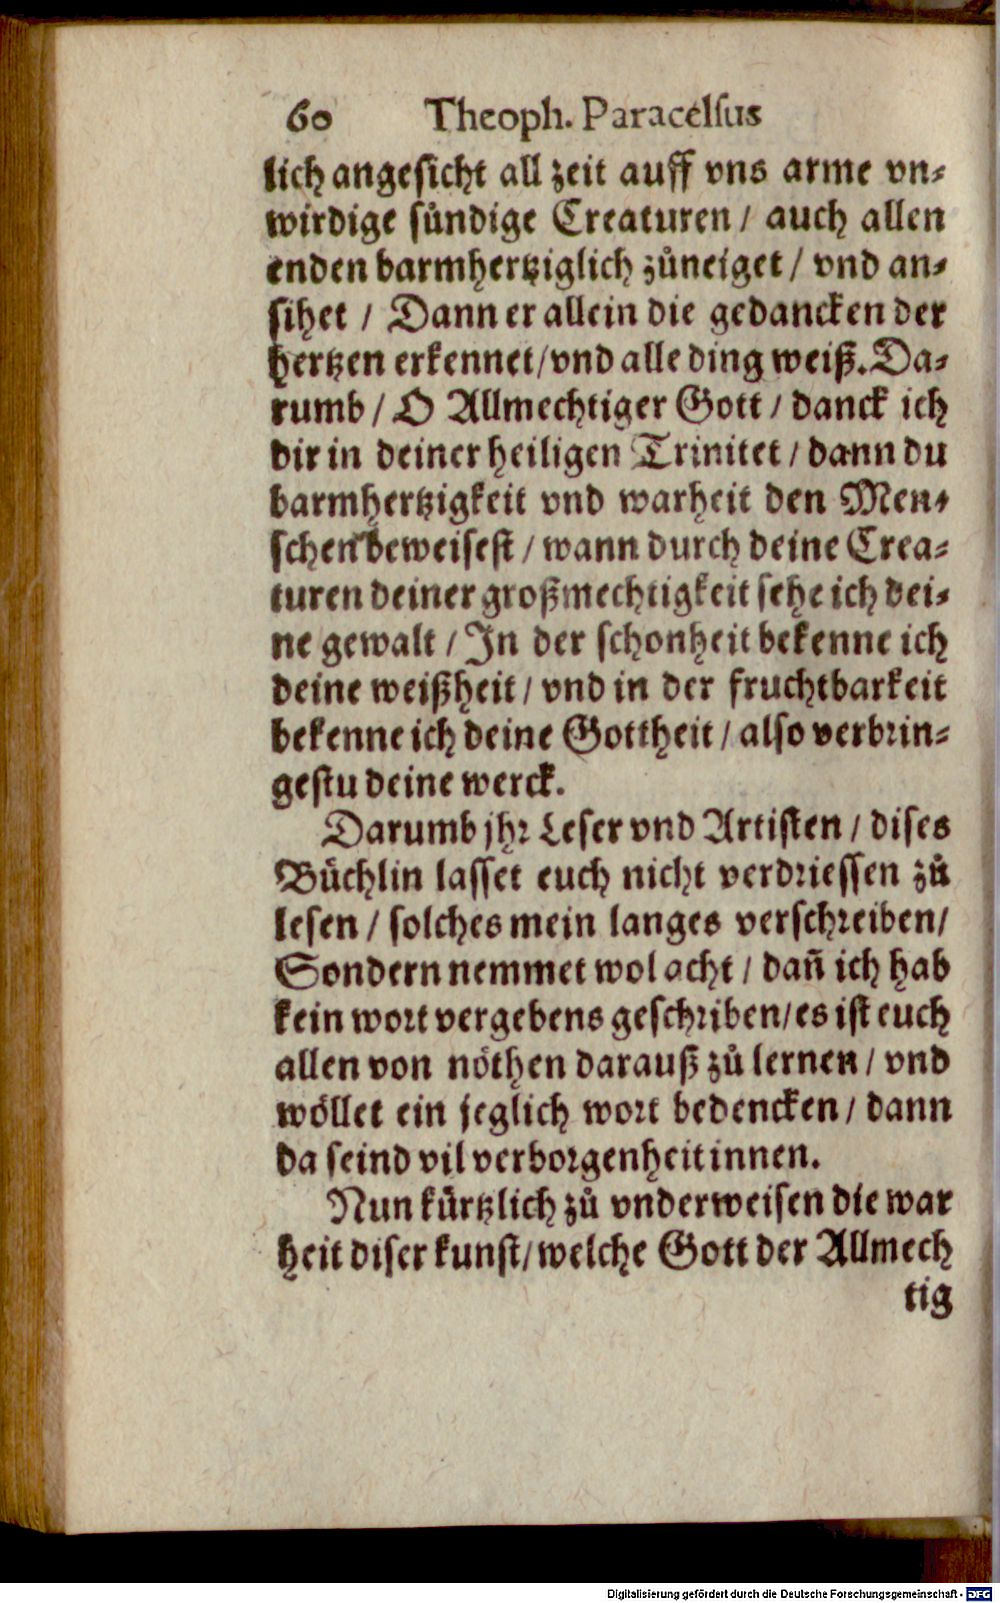 60 Theoph. Paracelsus
lich angesicht all zeit auff vns arme vn-
wirdige sündige Creaturen / auch allen
enden barmhertziglich zůneiget / vnd an-
sihet / Dann er allein die gedancken der
hertzen erkennet / vnd alle ding weiß. Da-
rumb / O Allmechtiger Gott / danck ich
dir in deiner heiligen Trinitet / dann du
barmhertzigkeit vnd warheit den Men-
schen beweisest / wann durch deine Crea-
turen deiner großmechtigkeit sehe ich dei-
ne gewalt / In der schonheit bekenne ich
deine weißheit / vnd in der fruchtbarkeit
bekenne ich deine Gottheit / also verbrin-
gestu deine werck.
Darumb jhr Leser vnd Artisten / dises
Büchlin lasset euch nicht verdriessen zů
lesen / solches mein langes verschreiben /
Sondern nemmet wol acht / dañ ich hab
kein wort vergebens geschriben / es ist euch
allen von nöthen darauß zů lernen / vnd
wöllet ein jeglich wort bedencken / dann
da seind vil verborgenheit innen.
Nun kürtzlich zů vnderweisen die war
heit diser kunst / welche Gott der Allmech
tig
Digitalisierung gefördert durch die Deutsche Forschungsgemeinschaft - DFG